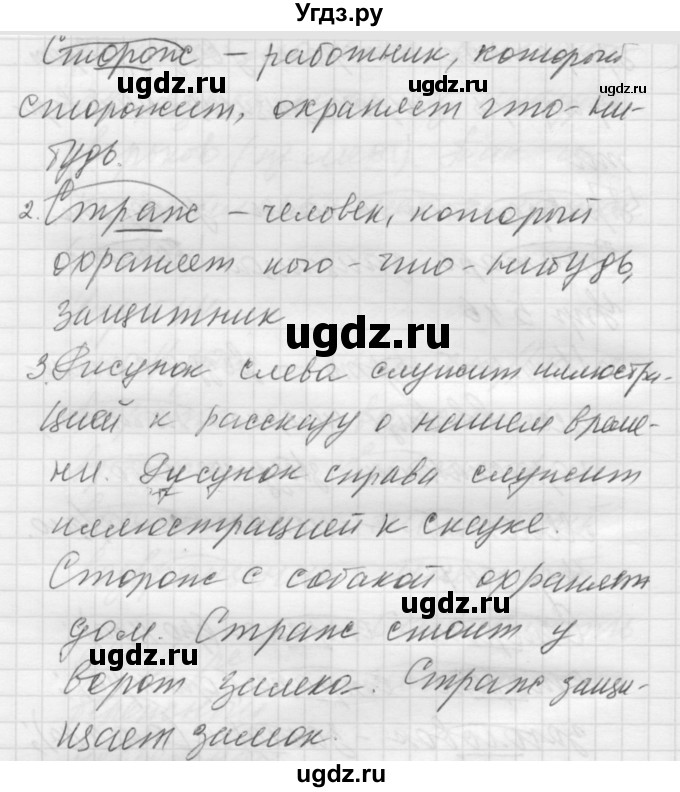 Угдз.ру
Сторож – работник, который
сторожит, охраняет что-ни-
будь.
2. Страж – человек, который
охраняет кого-что-нибудь,
защитник
3. Рисунок слева служит иллюстра-
цией к рассказу о нашем време-
ни. Рисунок справа служит
иллюстрацией к сказке.
Сторож с собакой охраняет
дом. Страж стоит у
ворот замка. Страж защи-
щает замок.
ugdz.ru
ugdz.ru
ugdz.ru
ugdz.ru
ugdz.ru
ugdz.ru
ugdz.ru
ugdz.ru